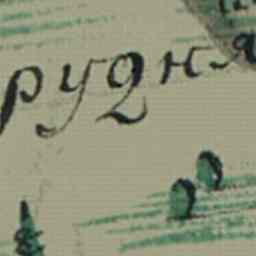 рудня